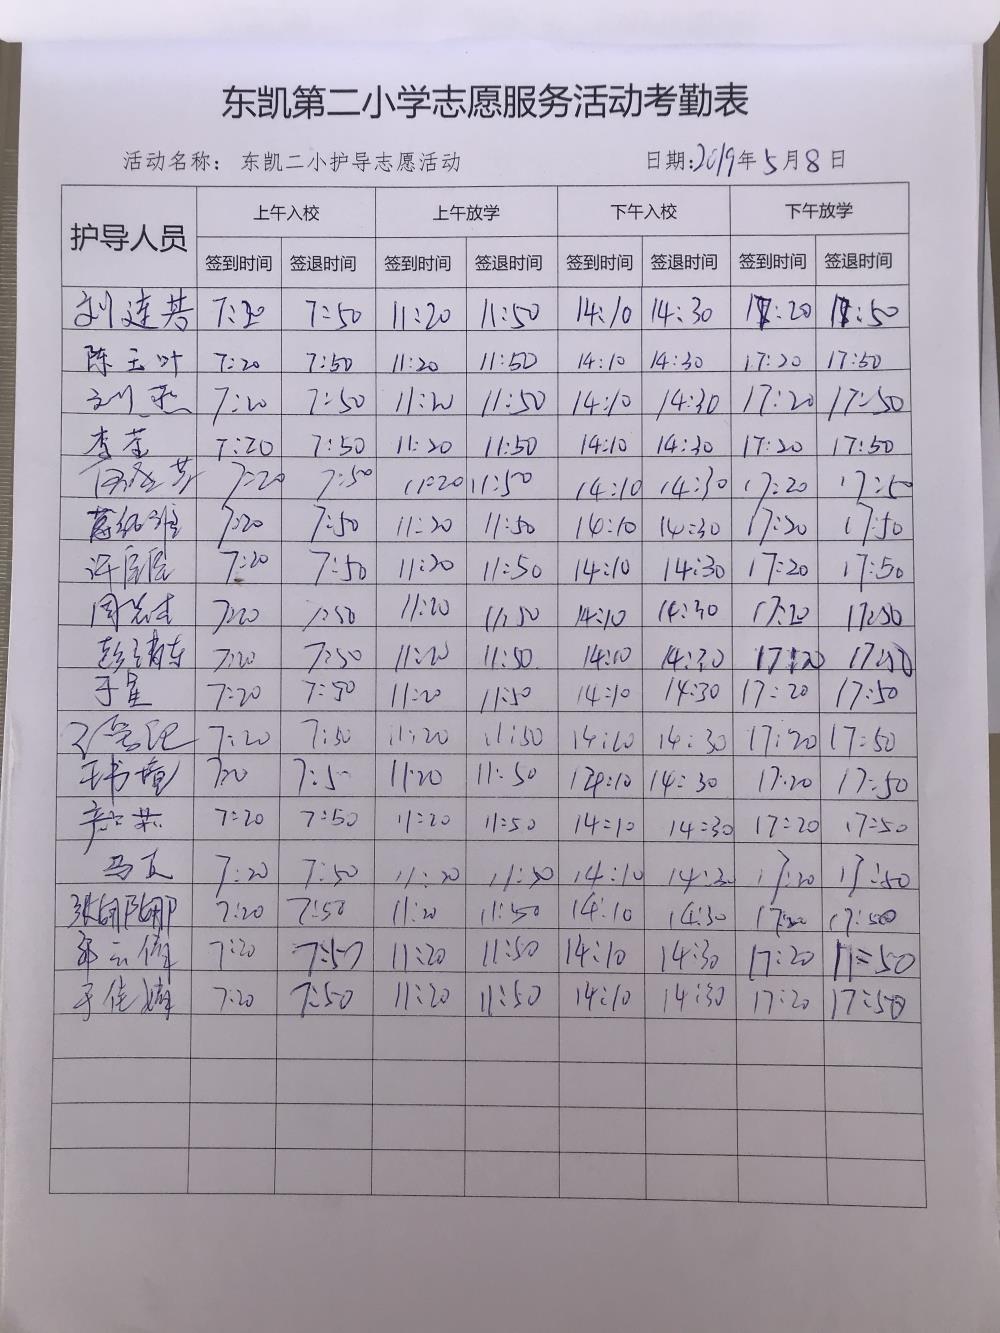 东凯第二小学志愿服务活动考勤表
活动名称： 东凯二小护导志愿活动 日期:2019年5月8日
护导人员 上午入校 上午放学 下午入校 下午放学
签到时间 签退时间 签到时间 签退时间 签到时间 签退时间 签到时间 签退时间
刘连芸 7:20 7:50 11:20 11:50 14:10 14:30 17:20 17:50
陈玉叶 7:20 7:50 11:20 11:50 14:10 14:30 17:20 17:50
刘燕 7:20 7:50 11:20 11:50 14:10 14:30 17:20 17:50
李莹 7:20 7:50 11:20 11:50 14:10 14:30 17:20 17:50
7:20 7:50 11:20 11:50 14:10 14:30 17:20 17:50
7:20 7:50 11:20 11:50 14:10 14:30 17:20 17:50
7:20 7:50 11:20 11:50 14:10 14:30 17:20 17:50
7:20 7:50 11:20 11:50 14:10 14:30 17:20 17:50
7:20 7:50 11:20 11:50 14:10 14:30 17:20 17:50
于星 7:20 7:50 11:20 11:50 14:10 14:30 17:20 17:50
7:20 7:50 11:20 11:50 14:10 14:30 17:20 17:50
7:20 7:50 11:20 11:50 14:10 14:30 17:20 17:50
7:20 7:50 11:20 11:50 14:10 14:30 17:20 17:50
马友 7:20 7:50 11:20 11:50 14:10 14:30 17:20 17:50
张娜娜 7:20 7:50 11:20 11:50 14:10 14:30 17:20 17:50
7:20 7:50 11:20 11:50 14:10 14:30 17:20 17:50
于佳婧 7:20 7:50 11:20 11:50 14:10 14:30 17:20 17:50